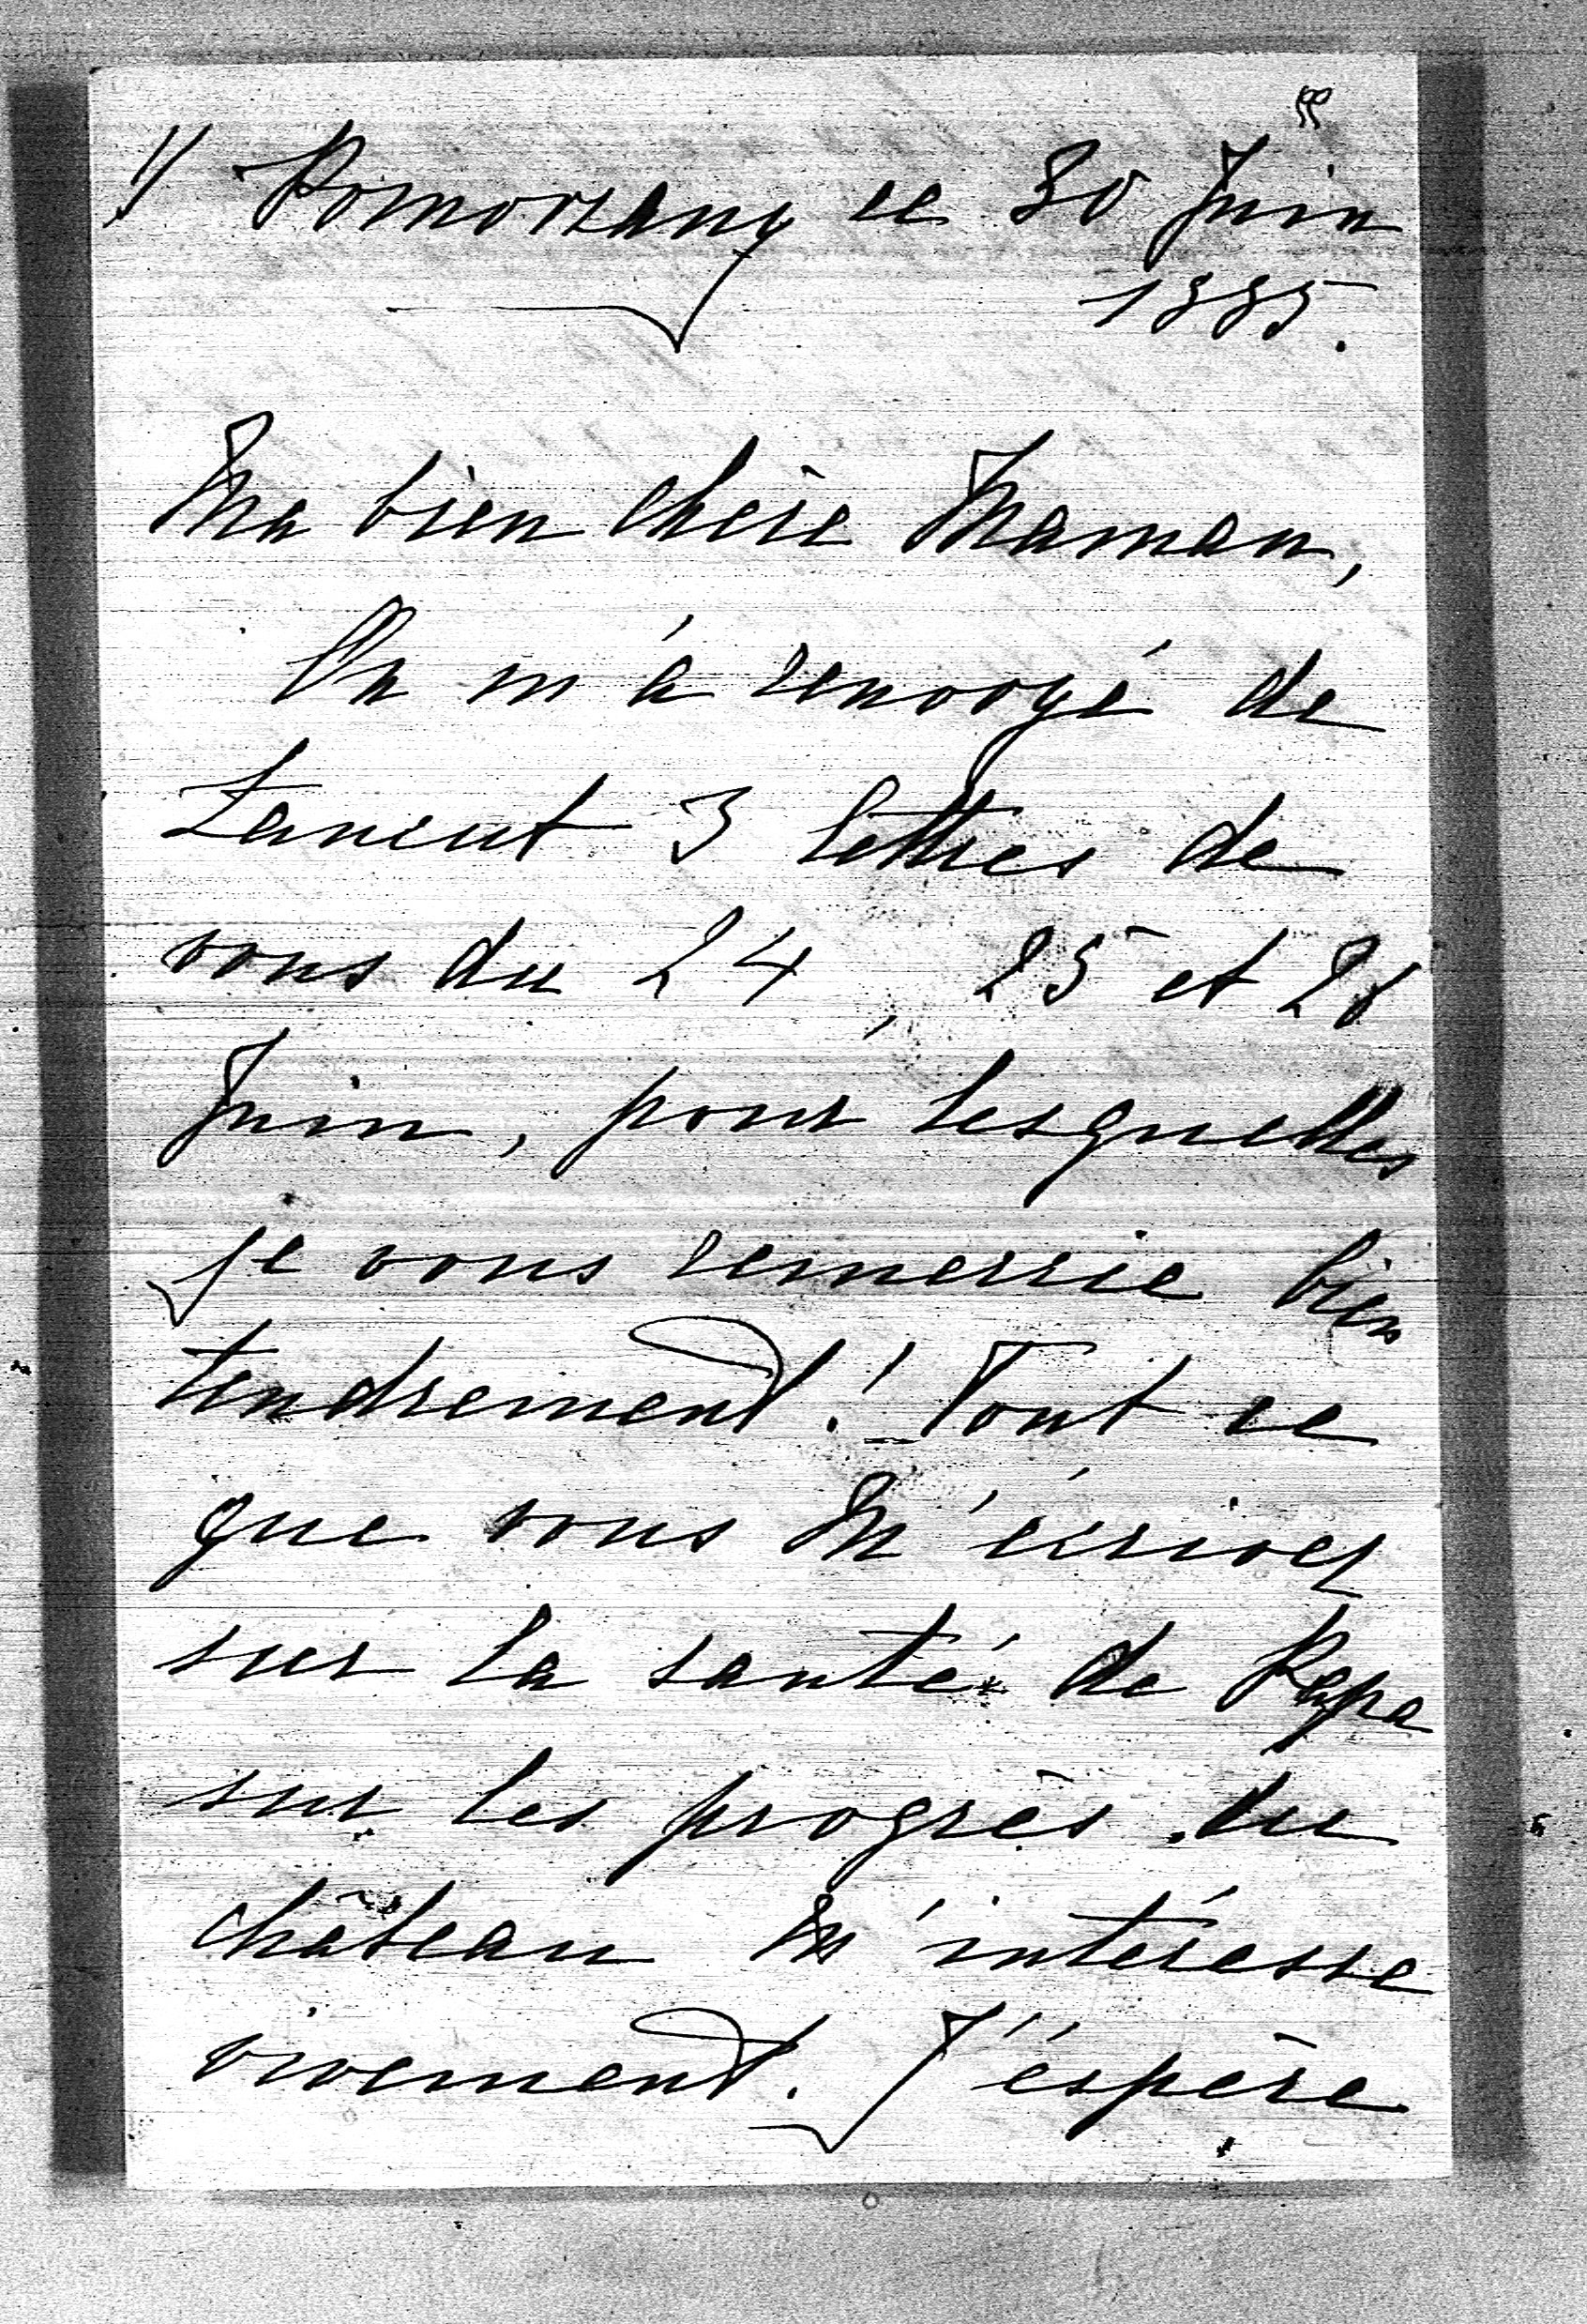 1/ Pomorzany ce 30 Juin
1885.
Ma bien chère Maman,
On m'a renvoyé de
Łancut 3 lettres de
vous du 24, 25 et 26
Juin, pour lesquelles
je vous remercie bien
tendrement! Tout ce
que vous m'écrivez
sur la santé de Papa
sur les progrès du
château m'intéresse
vivement. J'éspère